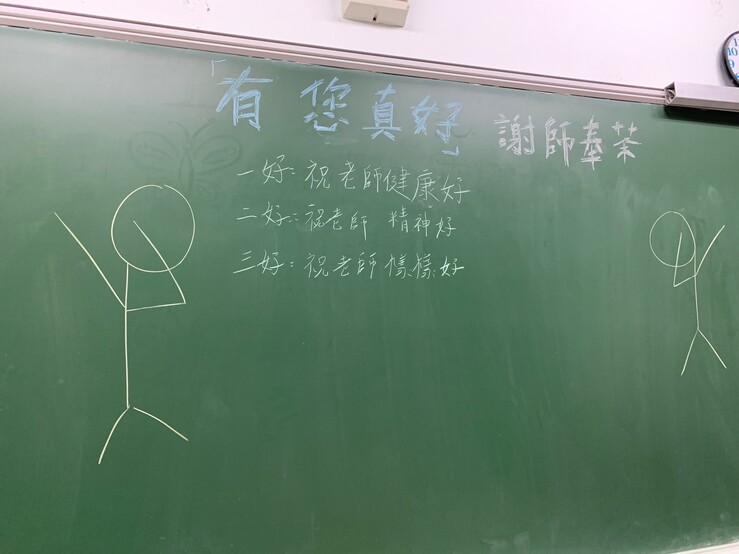 「有您真好」 謝師奉茶
一好：祝老師健康好
二好：祝老師 精神好
三好：祝老師樣樣好